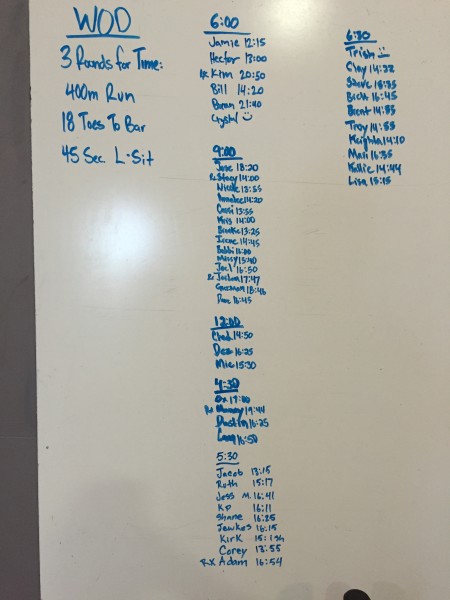 WOD
3 Rounds for Time:
400m Run
18 Toes To Bar
45 Sec. L-Sit
6:00
Jamie 12:15
Hector 13:00
Kim 20:50
Bill 14:20
21:40
Crystal
9:00
Jose 18:20
Rx Stacy 14:00
Nicole 13:55
Annalee 14:20
13:55
Kris 14:00
Brooke 13:25
Irene 14:45
Bobbi
Missy 13:40
Joel 16:50
Rx Joshua 17:47
Guzman 18:46
Dave 16:45
12:00
Chad 14:50
Des 16:25
Mic 15:30
4:30
Ox
19:44
Dustin 16:25
16:50
5:30
Jacob 13:15
Ruth 15:17
Jess M. 16:41
KP 16:11
Shane 16:25
Jewkes 16:15
Kirk
Corey 13:55
RX Adam 16:54
6:30
Trish
Clay
Steve
16:45
Brent
Troy
14:10
Mari 16:35
Kallie 14:44
Lisa 15:15